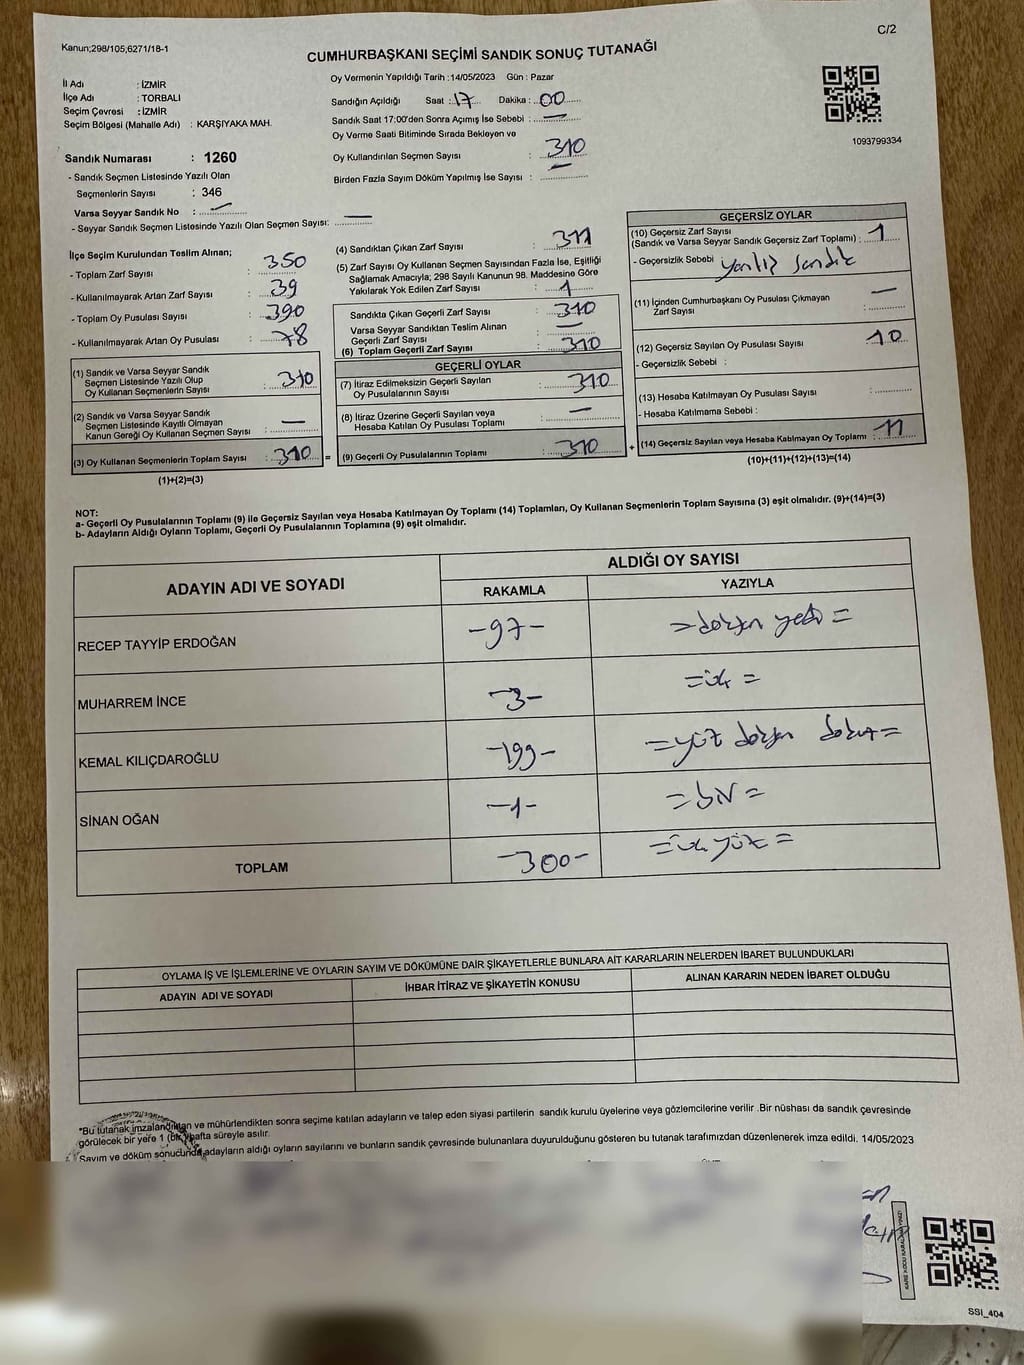 Kanun;298/105;6271/18-1
C/2
CUMHURBAŞKANI SEÇİMİ SANDIK SONUÇ TUTANAĞI
İl Adı : İZMİR
İlçe Adı : TORBALI
Seçim Çevresi : İZMİR
Seçim Bölgesi (Mahalle Adı) : KARŞIYAKA MAH.
Oy Vermenin Yapıldığı Tarih :14/05/2023 Gün : Pazar
Sandığın Açıldığı Saat : 17 Dakika : 00
Sandık Saat 17:00'den Sonra Açımış İse Sebebi : —
Oy Verme Saati Bitiminde Sırada Bekleyen ve
Oy Kullandırılan Seçmen Sayısı : 310
Birden Fazla Sayım Döküm Yapılmış İse Sayısı : —
1093799334
Sandık Numarası : 1260
- Sandık Seçmen Listesinde Yazılı Olan
Seçmenlerin Sayısı : 346
Varsa Seyyar Sandık No : —
- Seyyar Sandık Seçmen Listesinde Yazılı Olan Seçmen Sayısı: —
İlçe Seçim Kurulundan Teslim Alınan;
- Toplam Zarf Sayısı : 350
- Kullanılmayarak Artan Zarf Sayısı : 39
- Toplam Oy Pusulası Sayısı : 390
- Kullanılmayarak Artan Oy Pusulası : 78
(1) Sandık ve Varsa Seyyar Sandık
Seçmen Listesinde Yazılı Olup
Oy Kullanan Seçmenlerin Sayısı : 310
(2) Sandık ve Varsa Seyyar Sandık
Seçmen Listesinde Kayıtlı Olmayan
Kanun Gereği Oy Kullanan Seçmen Sayısı : —
(3) Oy Kullanan Seçmenlerin Toplam Sayısı : 310 =
(1)+(2)=(3)
(4) Sandıktan Çıkan Zarf Sayısı : 311
(5) Zarf Sayısı Oy Kullanan Seçmen Sayısından Fazla İse, Eşitliği
Sağlamak Amacıyla; 298 Sayılı Kanunun 98. Maddesine Göre
Yakılarak Yok Edilen Zarf Sayısı : 1
Sandıkta Çıkan Geçerli Zarf Sayısı : 310
Varsa Seyyar Sandıktan Teslim Alınan
Geçerli Zarf Sayısı : —
(6) Toplam Geçerli Zarf Sayısı : 310
GEÇERLİ OYLAR
(7) İtiraz Edilmeksizin Geçerli Sayılan
Oy Pusulalarının Sayısı : 310
(8) İtiraz Üzerine Geçerli Sayılan veya
Hesaba Katılan Oy Pusulası Toplamı : —
(9) Geçerli Oy Pusulalarının Toplamı : 310 +
GEÇERSİZ OYLAR
(10) Geçersiz Zarf Sayısı
(Sandık ve Varsa Seyyar Sandık Geçersiz Zarf Toplamı) : 1
- Geçersizlik Sebebi yanlız sandık
(11) İçinden Cumhurbaşkanı Oy Pusulası Çıkmayan
Zarf Sayısı : —
(12) Geçersiz Sayılan Oy Pusulası Sayısı : 10
- Geçersizlik Sebebi :
(13) Hesaba Katılmayan Oy Pusulası Sayısı :
- Hesaba Katılmama Sebebi :
(14) Geçersiz Sayılan veya Hesaba Katılmayan Oy Toplamı : 11
(10)+(11)+(12)+(13)=(14)
NOT:
a- Geçerli Oy Pusulalarının Toplamı (9) ile Geçersiz Sayılan veya Hesaba Katılmayan Oy Toplamı (14) Toplamları, Oy Kullanan Seçmenlerin Toplam Sayısına (3) eşit olmalıdır. (9)+(14)=(3)
b- Adayların Aldığı Oyların Toplamı, Geçerli Oy Pusulalarının Toplamına (9) eşit olmalıdır.
ADAYIN ADI VE SOYADI
ALDIĞI OY SAYISI
RAKAMLA YAZIYLA
RECEP TAYYİP ERDOĞAN -97- =doksan yedi=
MUHARREM İNCE -3- =üç=
KEMAL KILIÇDAROĞLU -199- =yüz doksan dokuz=
SİNAN OĞAN -1- =bir=
TOPLAM -300- =üç yüz=
OYLAMA İŞ VE İŞLEMLERİNE VE OYLARIN SAYIM VE DÖKÜMÜNE DAİR ŞİKAYETLERLE BUNLARA AİT KARARLARIN NELERDEN İBARET BULUNDUKLARI
ADAYIN ADI VE SOYADI İHBAR İTİRAZ VE ŞİKAYETİN KONUSU ALINAN KARARIN NEDEN İBARET OLDUĞU
*Bu tutanak imzalandıktan ve mühürlendikten sonra seçime katılan adayların ve talep eden siyasi partilerin sandık kurulu üyelerine veya gözlemcilerine verilir .Bir nüshası da sandık çevresinde
görülecek bir yere 1 (bir) hafta süreyle asılır.
Sayım ve döküm sonucunda adayların aldığı oyların sayılarını ve bunların sandık çevresinde bulunanlara duyurulduğunu gösteren bu tutanak tarafımızdan düzenlenerek imza edildi. 14/05/2023
SSI_404